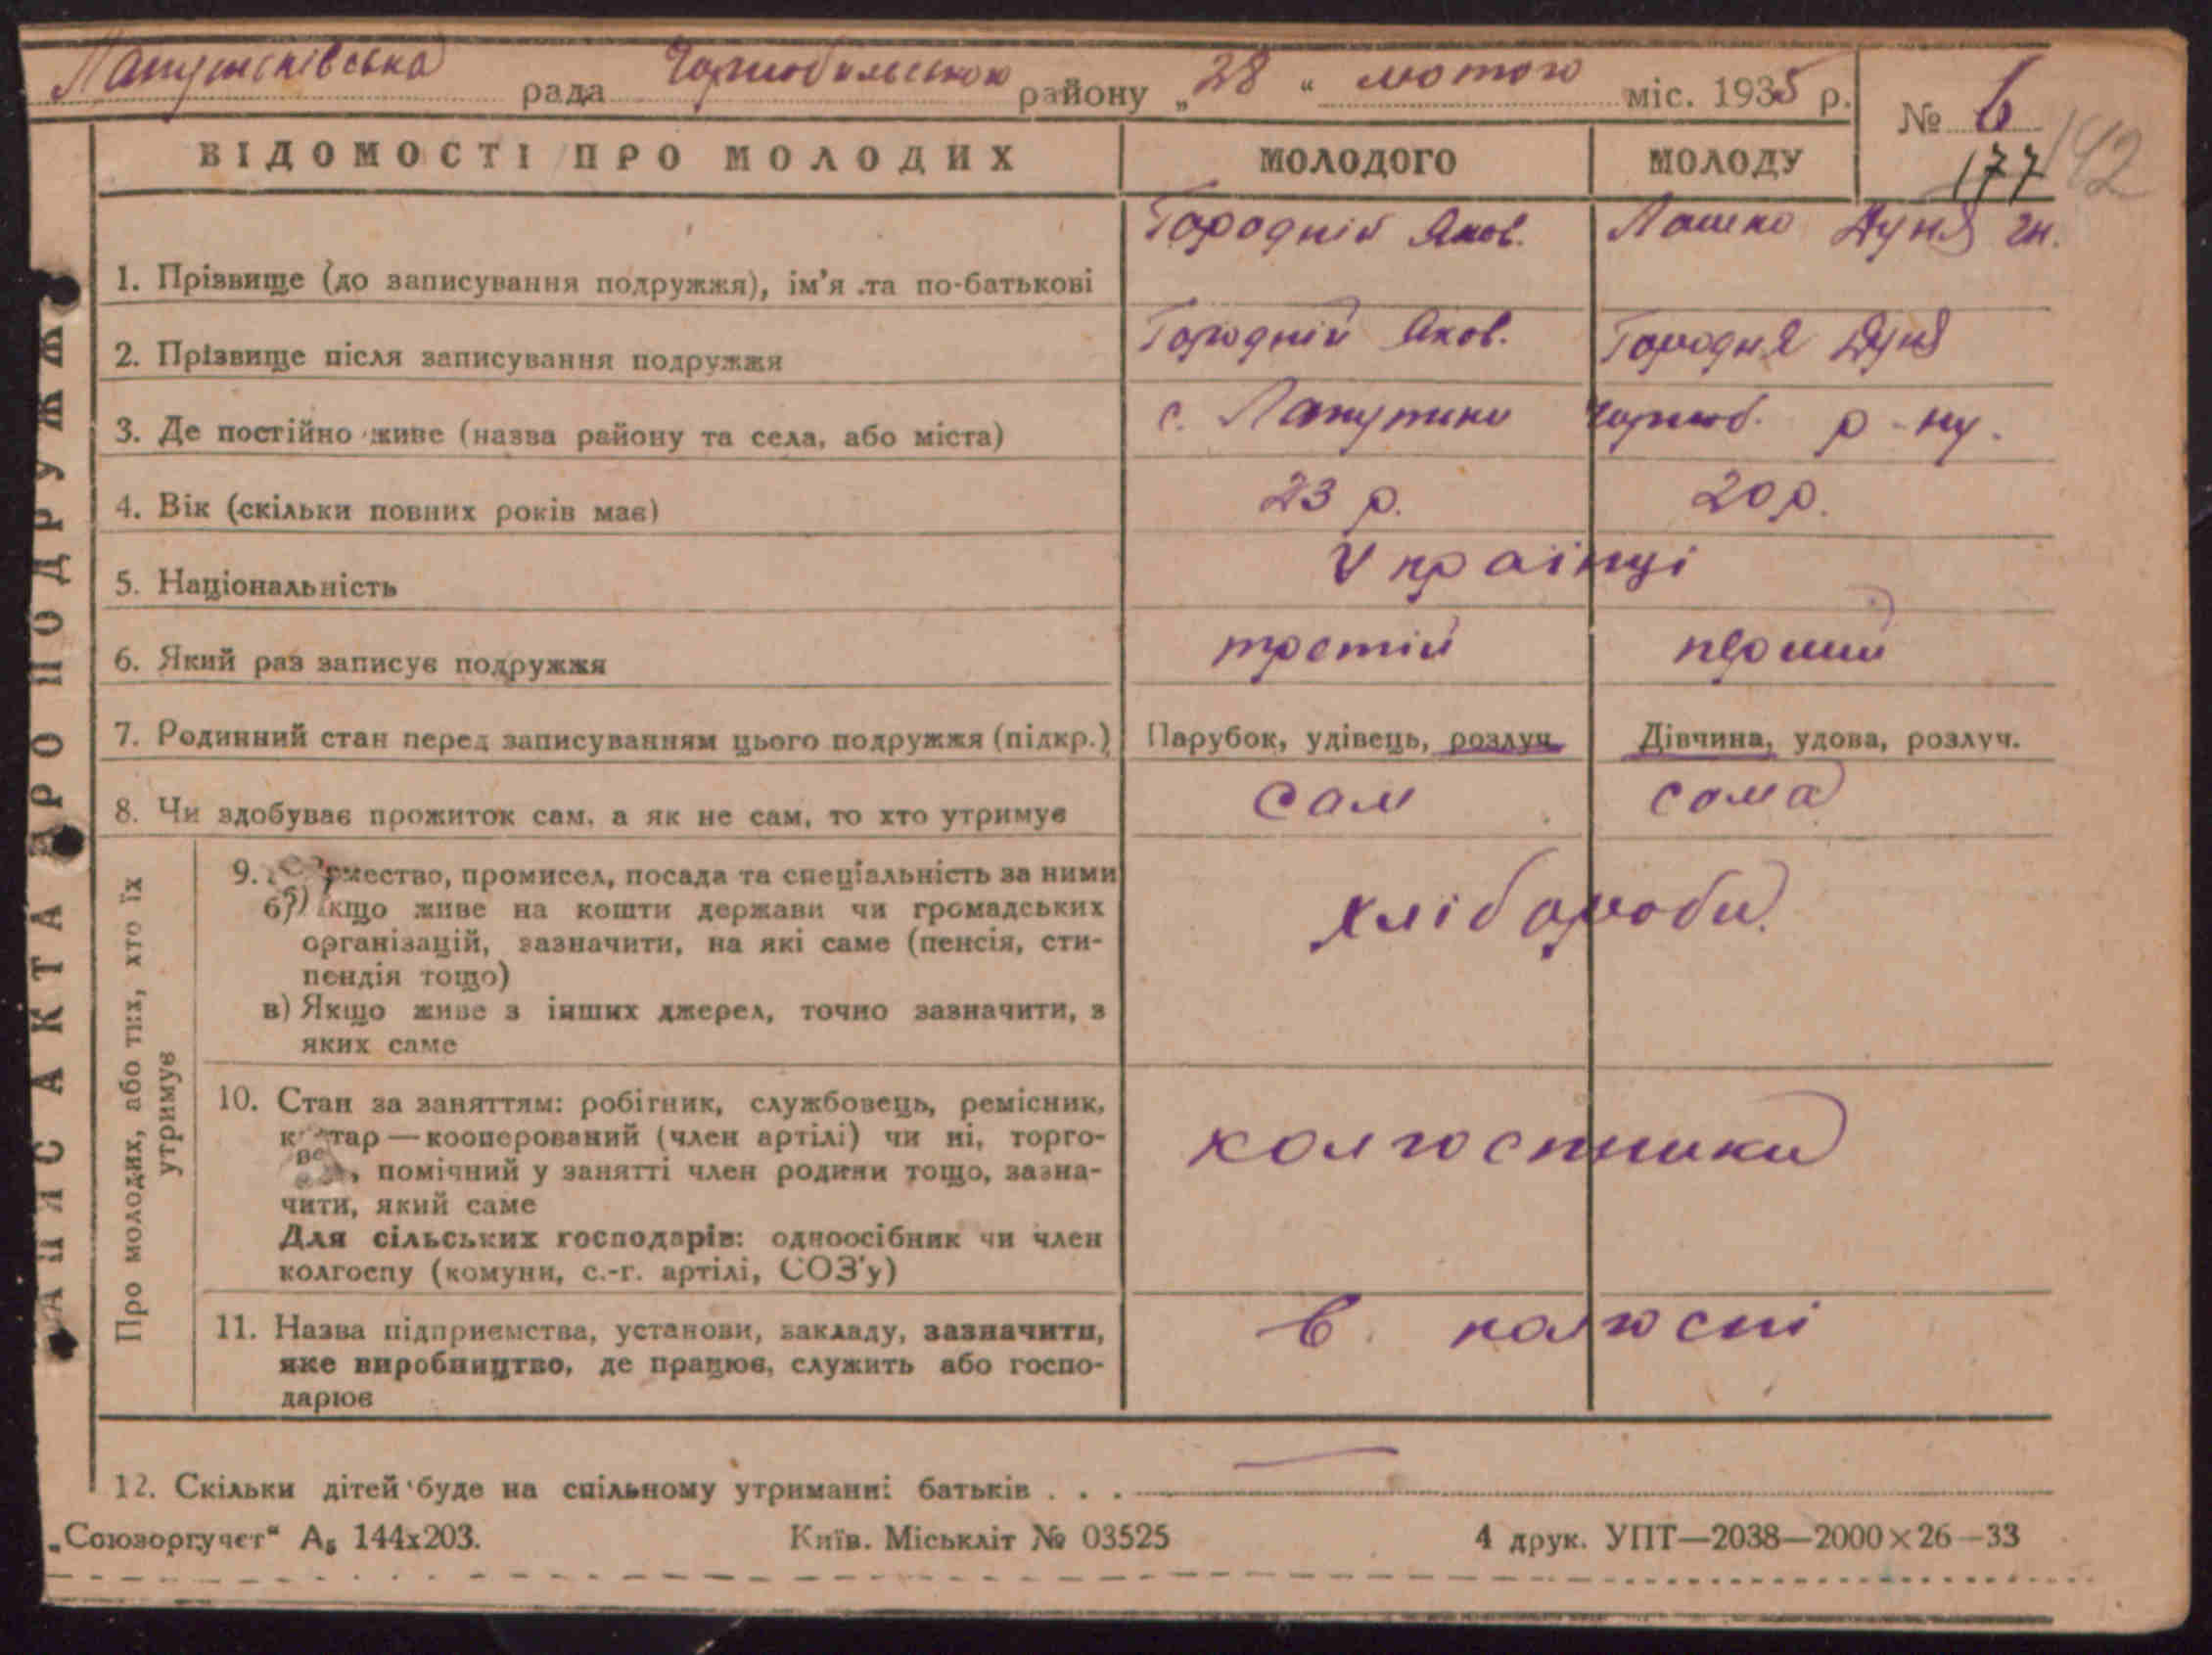 Лапутьківська рада Чорнобильського району „28“ лютого міс. 1935 р.
№ 6
177 142
ВІДОМОСТІ ПРО МОЛОДИХ МОЛОДОГО МОЛОДУ
1. Прізвище (до записування подружжя), ім'я та по-батькові Городній Яков. Лашко Дуня Гн.
2. Прізвище після записування подружжя Городній Яков. Городня Дуня
3. Де постійно живе (назва району та села, або міста) с. Лапутьки Чорноб. р-ну.
4. Вік (скільки повних років має) 23 р. 20 р.
5. Національність Українці
6. Який раз записує подружжя третій перший
7. Родинний стан перед записуванням цього подружжя (підкр.) Парубок, удівець, розлуч. Дівчина, удова, розлуч.
8. Чи здобуває прожиток сам, а як не сам, то хто утримує сам сама
Про молодих, або тих, хто їх утримує
9. промисел, посада та спеціальність за ними хлібороби
б) Якщо живе на кошти держави чи громадських
організацій, зазначити, на які саме (пенсія, сти-
пендія тощо)
в) Якщо живе з інших джерел, точно зазначити, з
яких саме
10. Стан за заняттям: робітник, службовець, ремісник,
кустар — кооперований (член артілі) чи ні, торго-
вець, помічний у занятті член родини тощо, зазна- колгоспники
чити, який саме
Для сільських господарів: одноосібник чи член
колгоспу (комуни, с.-г. артілі, СОЗ'у)
11. Назва підприємства, установи, закладу, зазначити, в колгоспі
яке виробництво, де працює, служить або госпо-
дарює
12. Скільки дітей буде на спільному утриманні батьків . . . —
„Союзоргучет“ А5 144х203. Київ. Міськліт № 03525 4 друк. УПТ—2038—2000×26—33
ЗАПИС АКТА ПРО ПОДРУЖЖЯ